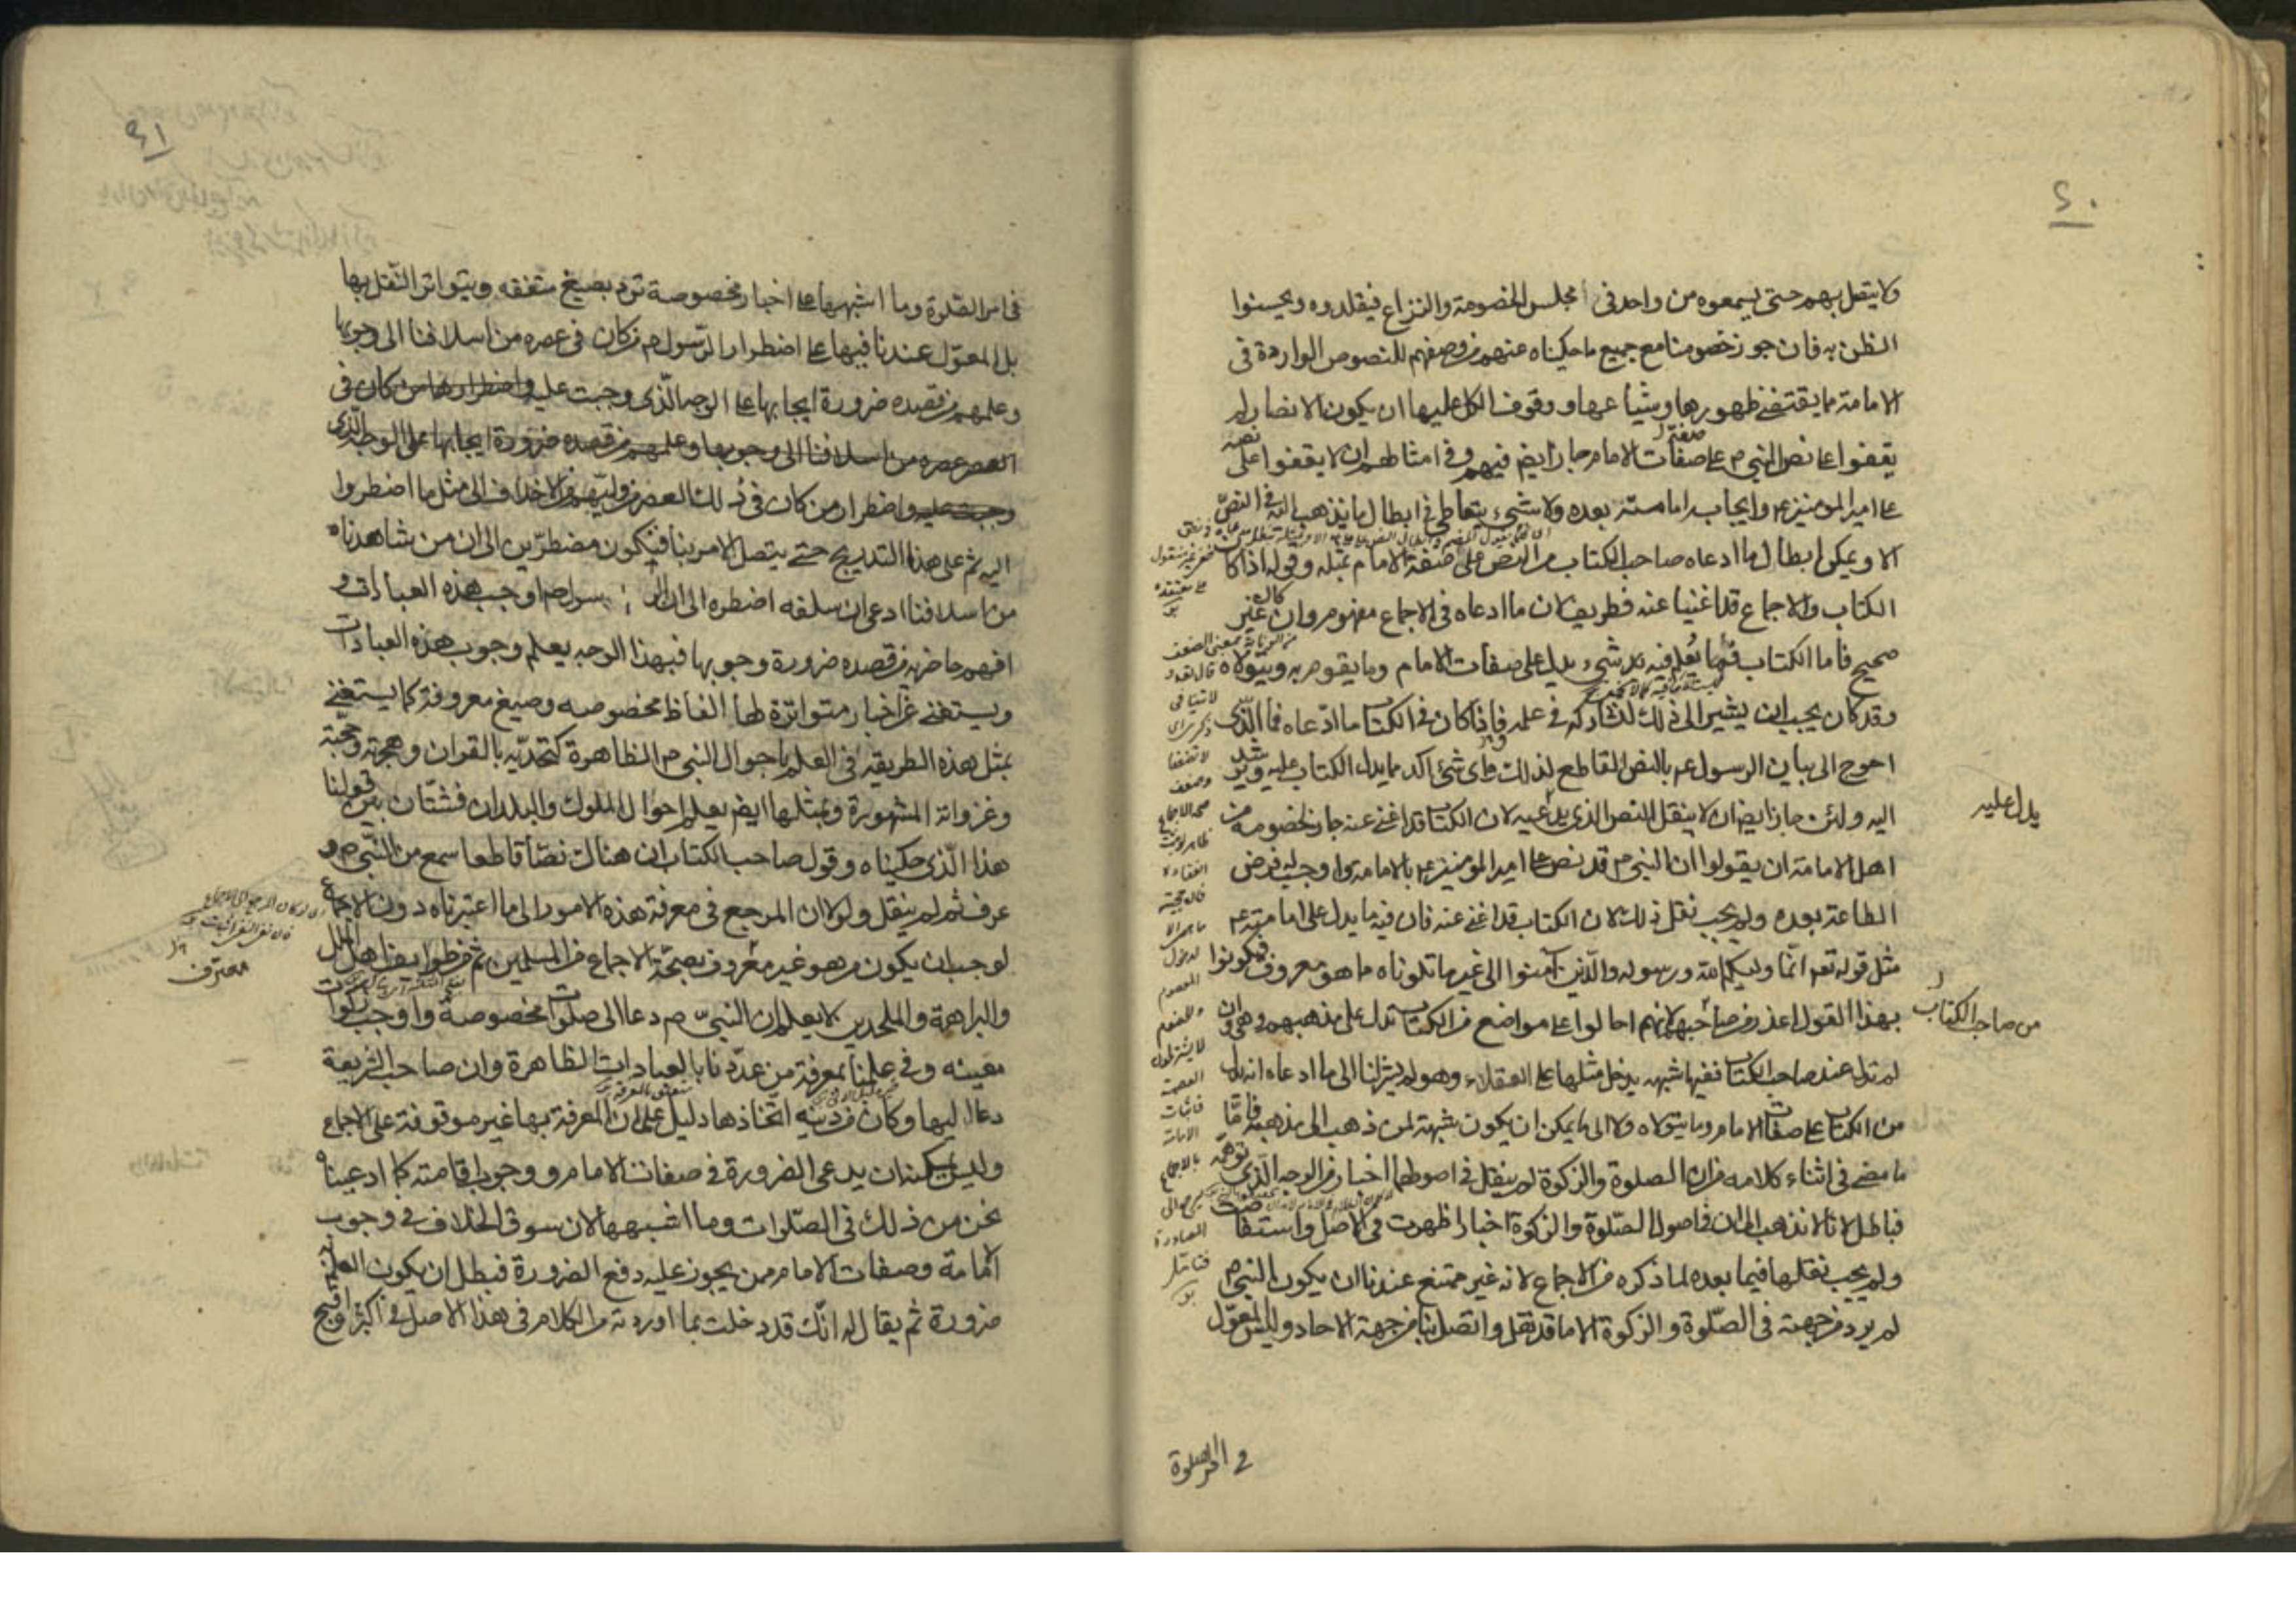 ٤٠
ولا يتصل بهم حتى يسمعوه من واحد في مجلس الخصومة والنزاع فيقلدوه ويحسنوا
الظن به فان جوز خصومنا مع جميع ما حكيناه عنهم من وصفهم للنصوص الواردة في
الامامة مما يقتضي ظهورها وشياعها ووقوف الكل عليها ان يكون الانصار لم
يقفوا على نص النبي م على صفات الامام جاز ايضا فيهم وفي امثالهم ان لا يقفوا على نصه
على امير المومنين ع وايجاب امامته بعده ولا شيء يتعاطى في ابطال ما يذهب اليه في النص
الا ويمكن ابطال ما ادعاه صاحب الكتاب من النص على صفة الامام بمثله وقوله اذا كان
الكتاب والاجماع قد اغنيا عنه فطريف لان ما ادعاه في الاجماع مفهوم وان كان غير
صحيح فاما الكتاب فما نعلم فيه شيء يدل على صفات الامام وما يقوم به ويتولاه
وقد كان يجب ان يشير الى ذلك لنشاركه في علمه فاذا كان في الكتاب ما ادعاه فما الذي
احوج الى بيان الرسول ع بالنص القاطع لذلك واي شيء اكد مما يدل الكتاب عليه ويرشد
اليه ولئن جاز ايضا ان لا ينقل النص الذي يدعيه لان الكتاب قد اغنى عنه جاز لخصومه من
اهل الامامة ان يقولوا ان النبي م قد نص على امير المومنين ع بالامامة واوجب له فرض
الطاعة بعده ولم يجب نقل ذلك لان الكتاب قد اغنى عنه فان فيه ما يدل على امامته ع
مثل قوله تعم انما وليكم الله ورسوله والذين آمنوا الى غير ما تلوناه ما هو معروف فيكونوا
بهذا القول اعذر من صاحبهم لانهم احالوا على مواضع من الكتاب تدل على مذهبهم وهي وان
لم تدل عند صاحب الكتاب ففيها شبهة يدخل مثلها على العقلاء وهو لم يشر لنا الى ما ادعاه انه يدل
من الكتاب على صفات الامام وما يتولاه ولا الى ما يمكن ان يكون شبهة لمن ذهب الى مذهبه فاما
ما مضى في اثناء كلامه من ان الصلوة والزكوة لم ينقل في اصولهما اخبار من الوجه الذي توهمه
فباطل لانا لا نذهب الى ان في اصول الصلوة والزكوة اخبارا ظهرت في الاصل واستفاضت
ولم يجب نقلها فيما بعده لما ذكره من الاجماع لانه غير ممتنع عندنا ان يكون النبي م
لم يرد من جهته في الصلوة والزكوة الا ما قد نقل واتصل بنا من جهة الاحاد وليس المعول
يدل عليه
من صاحب الكتاب
في امر الصلوة
٤١
في امر الصلوة وما اشبهها على اخبار مخصوصة ترد بصيغ متفقه ويتواتر النقل بها
بل المعول عندنا فيها على اضطرار الرسول م من كان في عصره من اسلافنا الى وجوبها
وعلمهم من قصده ضرورة ايجابها على الوجه الذي وجبت عليه واضطرارهما من كان في
العصر عصره من اسلافنا الى وجوبها وعلمهم من قصده ضرورة ايجابها على الوجه الذي
وجبت عليه واضطرار من كان في ذلك العصر من وليهم من الاخلاف الى مثل ما اضطروا
اليه ثم على هذا التدريج حتى يتصل الامر بنا فيكون مضطرين الى ان من شاهدناه
من اسلافنا ادعى ان سلفه اضطره الى ان الرسول م اوجب هذه العبادات و
افهم حاضريه من قصده ضرورة وجوبها فبهذا الوجه يعلم وجوب هذه العبادات
ويستغنى عن اخبار متواترة لها الفاظ مخصوصه وصيغ معروفة كما يستغنى
بمثل هذه الطريقة في العلم باحوال النبي م الظاهرة كتحديه بالقران وهجرته وحجته
وغزواته المشهورة وبمثلها ايضا يعلم احوال الملوك والبلدان فشتان بين قولنا
هذا الذي حكيناه وقول صاحب الكتاب ان هناك نصا قاطعا سمع من النبي م و
عرف ثم لم ينقل ولولا ان المرجع في معرفة هذه الامور الى ما اعتبرناه دون الاجماع
لوجب ان يكون من هو غير معروف بصحة الاجماع من المسلمين ثم من طوايف اهل الملل
والبراهمة والملحدين لا يعلم ان النبي م دعا الى صلوات مخصوصة واوجب زكوات
معينه وفي علمنا بمعرفة من عددنا بالعبادات الظاهرة وان صاحب الشريعة
دعا اليها وكان من دينه اتخاذها دليل على ان المعرفة بها غير موقوفة على الاجماع
وليس يمكنه ان يدعى الضرورة في صفات الامام ووجوب اقامته كما ادعيناه
نحن من ذلك في الصلوات وما اشبهها لان سوق الخلاف في وجوب
الامامة وصفات الامام ممن يجوز عليه دفع الضرورة فبطل ان يكون العلم
ضرورة ثم يقال له انك قد دخلت بما اوردته من الكلام في هذا الاصل في اكثر واقبح
معترف